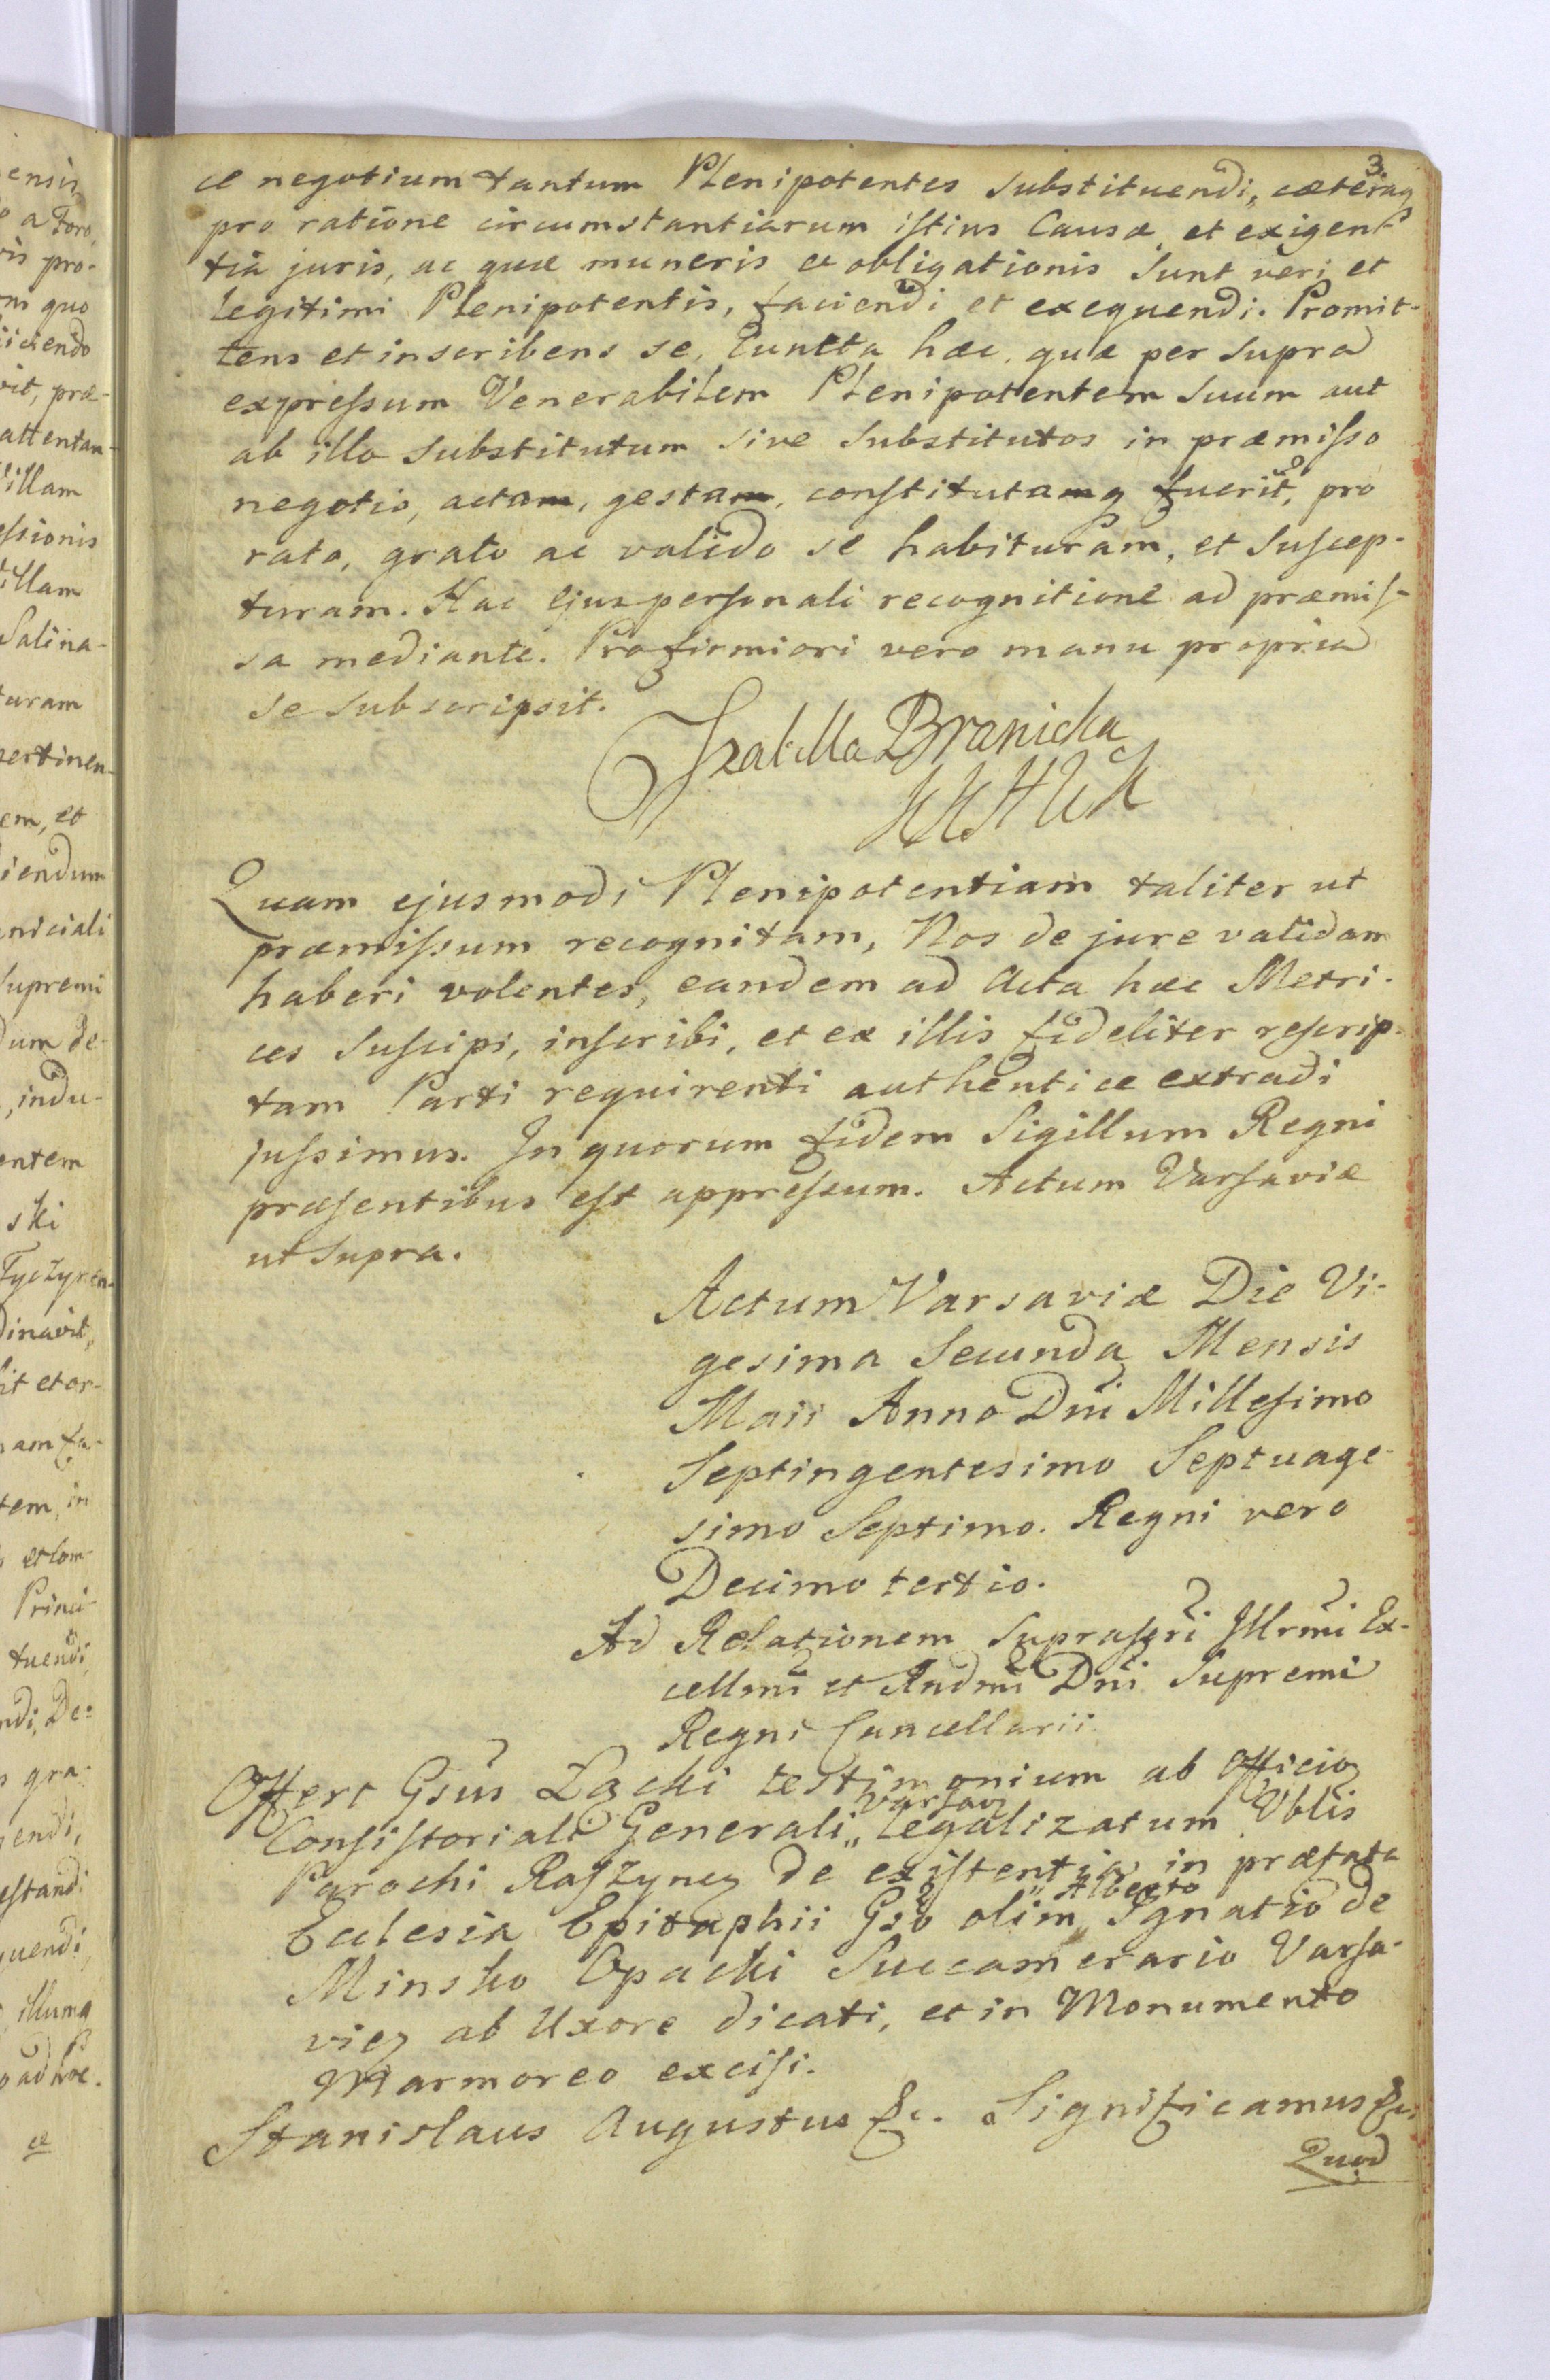 3
ce negotium tantum Plenipotentes substituendi, cæteraq
pro ratione circumstantiarum istius Causæ, et exigen-
tia juris, ac quæ muneris et obligationis sunt veri et
legitimi Plenipotentis, faciendi et exequendi. Promit-
tens et inscribens se, Cuncta hæc, quæ per supra
expressum Venerabilem Plenipotentem suum aut
ab illo substitutum sive substitutos in præmisso
negotio, actam, gestam, constitutamq fuerit, pro
rato, grato ac valido se habituram, et suscep-
turam. Hac ejus personali recognitione ad præmis-
sa mediante. Pro firmiori vero manu propria
se subscripsit.
Izabella Branicka
KKHWK
Quam ejusmodi Plenipotentiam taliter ut
præmissum recognitam, Nos de jure validam
haberi volentes, eandem ad Acta hæc Metri-
ces suscipi, inscribi, et ex illis fideliter rescrip-
tam Parti requirenti authentice extradi
jussimus. In quorum fidem Sigillum Regni
præsentibus est appressum. Actum Varsaviæ
ut supra.
Actum Varsaviæ Die Vi-
gesima Secunda Mensis
Maii Anno Dni Millesimo
Septingentesimo Septuage-
simo Septimo. Regni vero
Decimo tertio.
Ad Relationem suprascri Illrmi Ex-
cellmi et Rndmi Dni Supremi
Regni Cancellarii.
Offert Gsus Lącki testimonium ab Officio
Consistoriali Generali Varsav legalizatum Vblis
Parochi Raszynen de existentia in præfata
Ecclesia Epitaphii Gso olim Alberto Ignatio de
Minsko Opacki Succamerario Varsa-
vien ab Uxore dicati, et in Monumento
Marmoreo excisi.
Stanislaus Augustus &c. Significamus &c.
Quod
ensis
a Foro,
vis pro-
m quo
iiciendo
vit, præ-
attentam
illam
essionis
illam
Salina-
turam
pertinen-
em, et
iendum
niciali
supremi
dum de-
, indu-
entem
ski
Tyczyren-
dinavit,
it et or-
am fa-
tem, in
et com-
Princi-
tuendi
ndi, De=
gra-
gendi,
estandi
quendi,
illumq
ad hoc.
ce